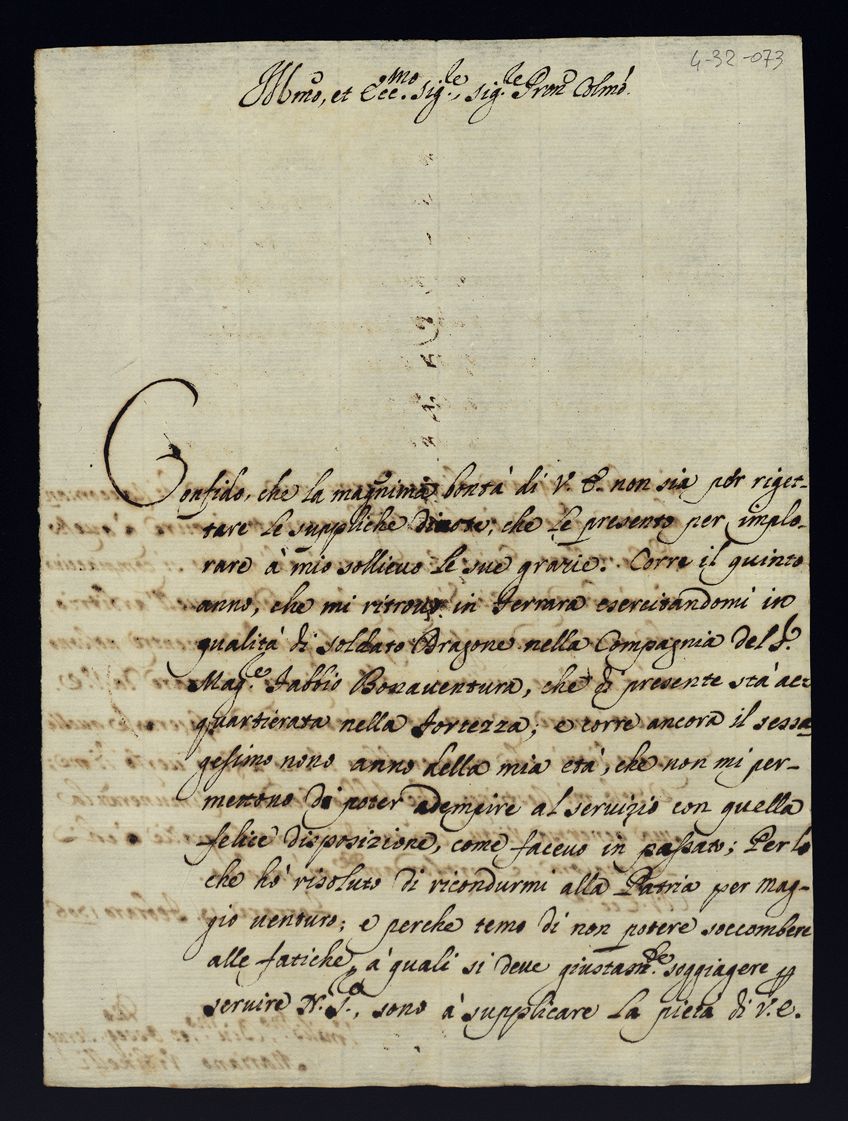 4-32-073
Illmo, et Ecc.mo Sig.re, Sig.re Pron Colmo.
Confido, che la magnima bontà di V. E. non sia per riget-
tare le suppliche divote, che le presento per implo-
rare à mio sollievo le sue grazie. Corre il quinto
anno, che mi ritrovo in Ferrara esercitandomi in
qualità di soldato Dragone nella Compagnia del S.r
Mag.e Fabbio Bonaventura, che di presente stà ac-
quartierata nella Fortezza, e corre ancora il sessa
gesimo nono anno della mia età, che non mi per-
mettono di poter adempire al servizio con quella
felice disposizione, come facevo in passato; Per lo
che hò risoluto di ricondurmi alla Patria per mag-
gio venturo; e perche temo di non potere soccombere
alle fatiche, à quali si deve giustam.te soggiagere p
servire N. S., sono à supplicare la pietà di V. E.